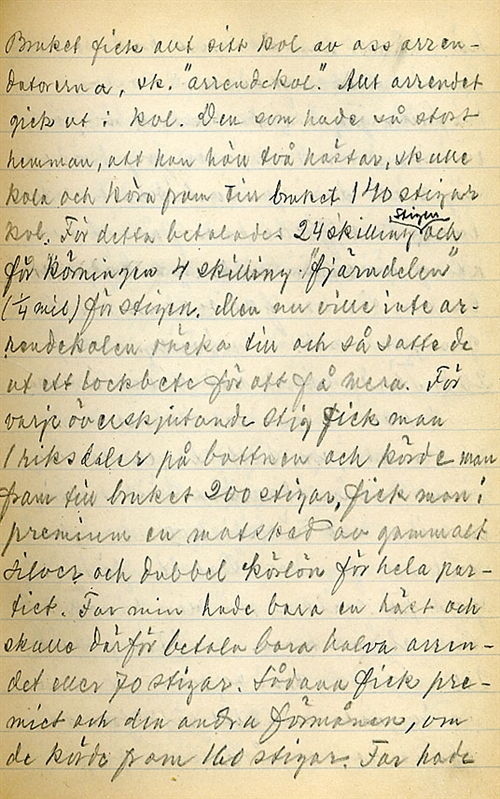 Bruket fick allt sitt kol av oss arren-
datorerna, sk. "arrendekol." Allt arrendet
gick ut i kol. Den som hade så stort
hemman, att han höll två hästar, skulle
kola och köra fram till bruket 140 stigar
kol. För detta betalades 24 skilling stigen och
för körningen 4 skilling "fjärndelen"
(1/4 mil) för stigen. Men nu ville inte ar-
rendekolen räcka till och så satte de
ut ett lockbete för att få mera. För
varje överskjutande stig fick man
1 riksdaler på bottnen och körde man
fram till bruket 200 stigar, fick man i
premium en matsked av gammalt
silver och dubbel körlön för hela par-
tiet. Far min hade bara en häst och
skulle därför betala bara halva arren-
det eller 70 stigar. Sådana fick pre-
miet och den andra förmånen, om
de körde fram 160 stigar. Far hade